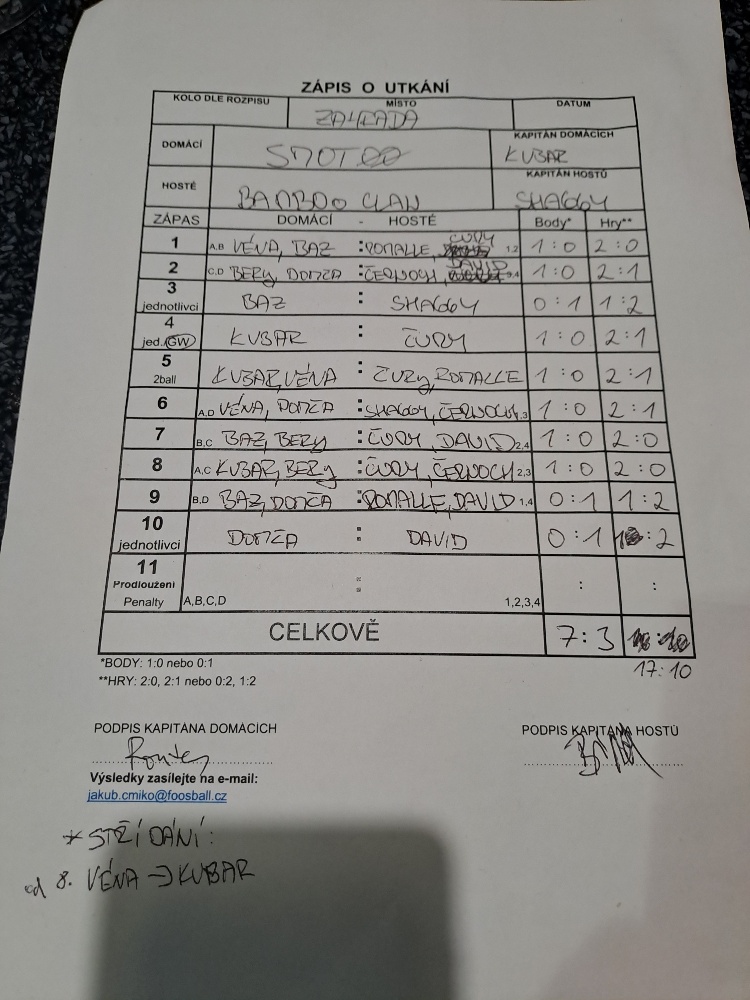 ZÁPIS O UTKÁNÍ
KOLO DLE ROZPISU MÍSTO DATUM
ZAHRADA
DOMÁCÍ KAPITÁN DOMÁCÍCH
KUBAR
HOSTÉ BAMBOO CLAN KAPITÁN HOSTŮ
SHAGGY
ZÁPAS DOMÁCÍ - HOSTÉ Body* Hry**
1 A,B VÉNA, BAZ : ROMALLE, ČURY 1,2 1:0 2:0
2 C,D BERY, DOMČA : ČERNOCH, DAVID 3,4 1:0 2:1
3 jednotlivci BAZ : SHAGGY 0:1 1:2
4 jed. GW KUBAR : ČURY 1:0 2:1
5 2ball KUBAR, VÉNA : ČURY, ROMALLE 1:0 2:1
6 A,D VÉNA, DOMČA : SHAGGY, ČERNOCH 1,3 1:0 2:1
7 B,C BAZ, BERY : ČURY, DAVID 2,4 1:0 2:0
8 A,C KUBAR, BERY : ČURY, ČERNOCH 2,3 1:0 2:0
9 B,D BAZ, DOMČA : ROMALLE, DAVID 1,4 0:1 1:2
10 jednotlivci DOMČA : DAVID 0:1 :2
11 Prodloužení Penalty A,B,C,D : 1,2,3,4 : :
CELKOVĚ 7:3
17:10
*BODY: 1:0 nebo 0:1
**HRY: 2:0, 2:1 nebo 0:2, 1:2
PODPIS KAPITÁNA DOMÁCÍCH PODPIS KAPITÁNA HOSTŮ
Výsledky zasílejte na e-mail:
jakub.cmiko@foosball.cz
* STŘÍDÁNÍ:
od 8. VÉNA → KUBAR